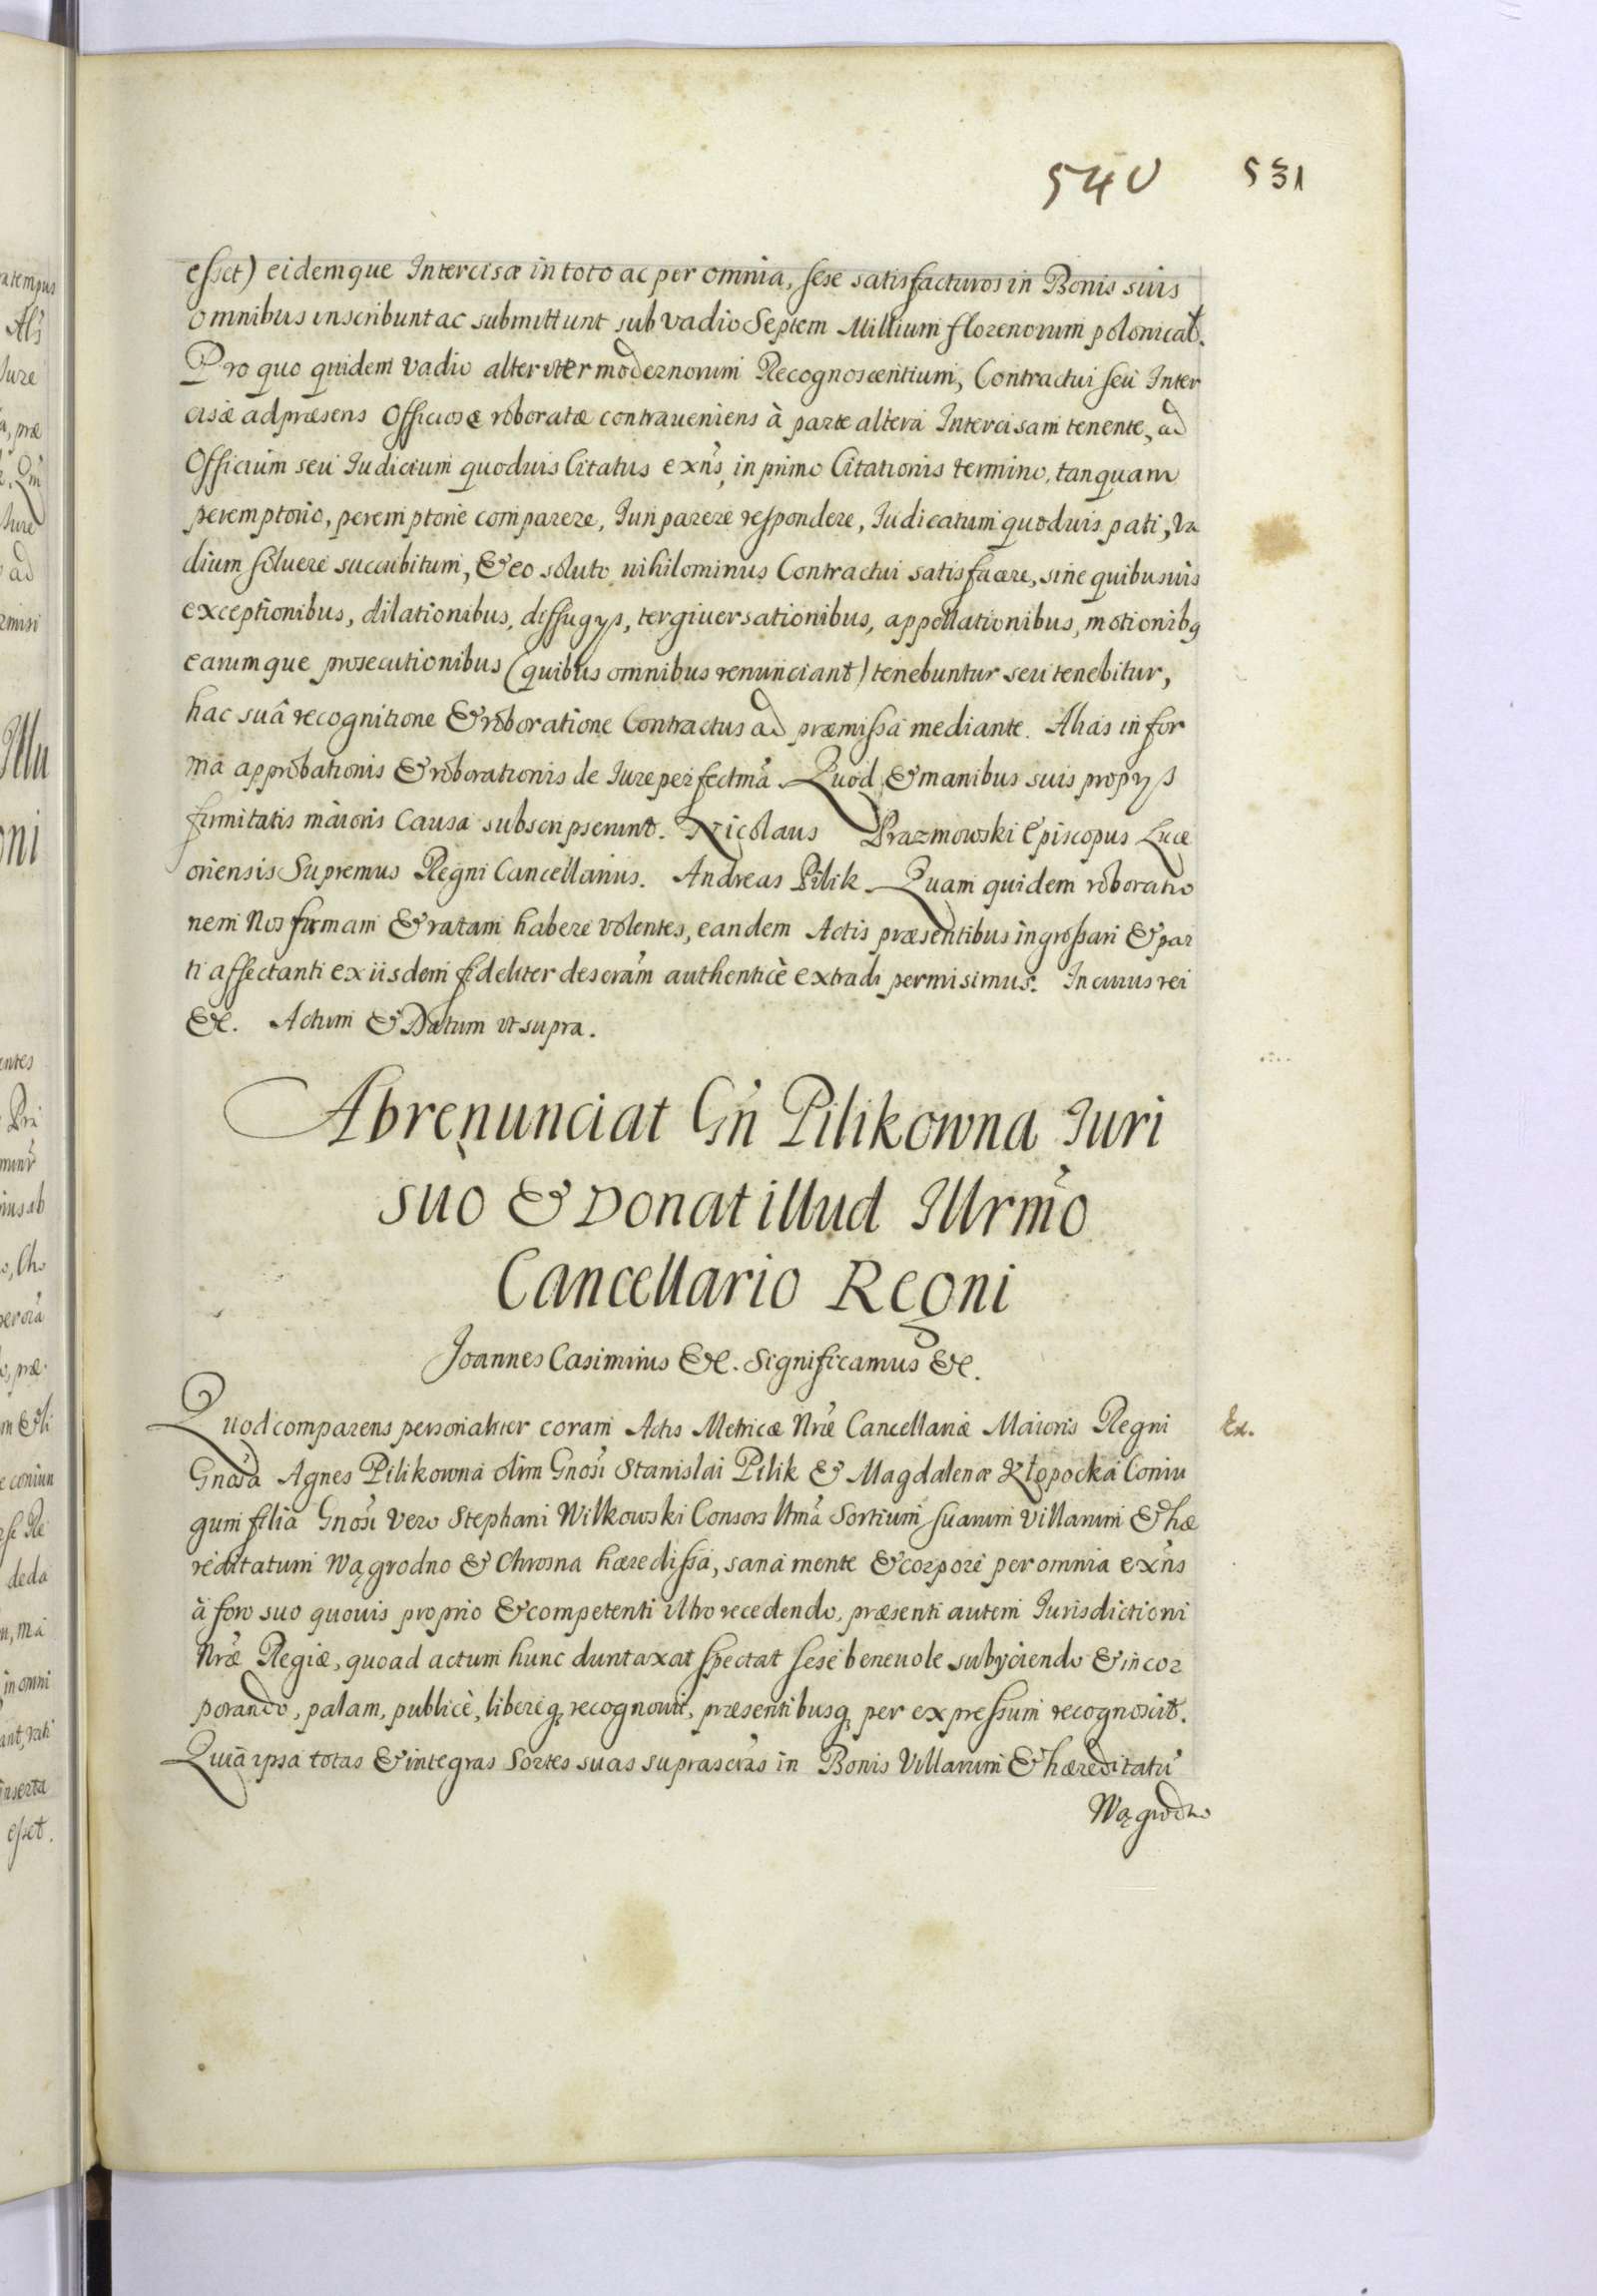 540 531
esset) eidemque Intercisæ in toto ac per omnia, sese satisfacturos in Bonis suis
omnibus inscribunt ac submittunt sub vadio Septem Millium florenorum polonicał.
Pro quo quidem vadio alteruter modernorum Recognoscentium, Contractui seu Inter
cisæ ad præsens Officiose roboratæ contraueniens à parte altera Intercisam tenente, ad
Officium seu Iudicium quoduis Citatus exñs, in primo Citationis termino, tanquam
peremptorio, peremptorie comparere, Iuri parere respondere, Iudicatum quoduis pati, Va
dium soluere succubitum, & eo soluto nihilominus Contractui satisfacere, sine quibusuis
exceptionibus, dilationibus, diffugys, tergiuersationibus, appellationibus, motionibq
earumque prosecutionibus (quibus omnibus renunciant) tenebuntur seu tenebitur,
hac suâ recognitione & roboratione Contractus ad præmissa mediante. Alias in for
ma approbationis & roborationis de Iure perfectmã Quod & manibus suis propys
firmitatis maioris causa subscripserunt. Nicolaus Prazmowski Episcopus Luce
oriensis Supremus Regni Cancellarius. Andreas Pilik Quam quidem roboratio
nem Nos firmam & ratam habere volentes, eandem Actis præsentibus ingrossari & par
ti affectanti ex iisdem fideliter descrãm authenticè extradi permisimus. In cuius rei
&c. Actum & Datum vt supra.
Abrenunciat Gñ Pilikowna Iuri
suo & Donat illud Illrmo
Cancellario Regni
Joannes Casimirus &c. Significamus &c.
Quod comparens personaliter coram Actis Metricæ Nræ Cancellariæ Maioris Regni
Ex.
Gnosa Agnes Pilikowna olim Gnosi Stanislai Pilik & Magdalenæ Kłopocka Coniu
gum filia Gnosi vero Stephani Wilkowski Consors ltma Sortium suarum villarum & hæ
reditatum Wągrodno & Chrosna hæredissa, sana mente & corpore per omnia exñs
à foro suo quouis proprio & competenti vltro recedendo, præsenti autem Iurisdictioni
Nræ Regiæ, quoad actum hunc duntaxat spectat sese beneuole subyciendo & incor
porando, palam, publicè, libereq recognouit, præsentibusq per expressum recognoscit.
Quia ipsa totas & integras Sortes suas suprascras in Bonis Villarum & hæreditatũ
Wągrodno